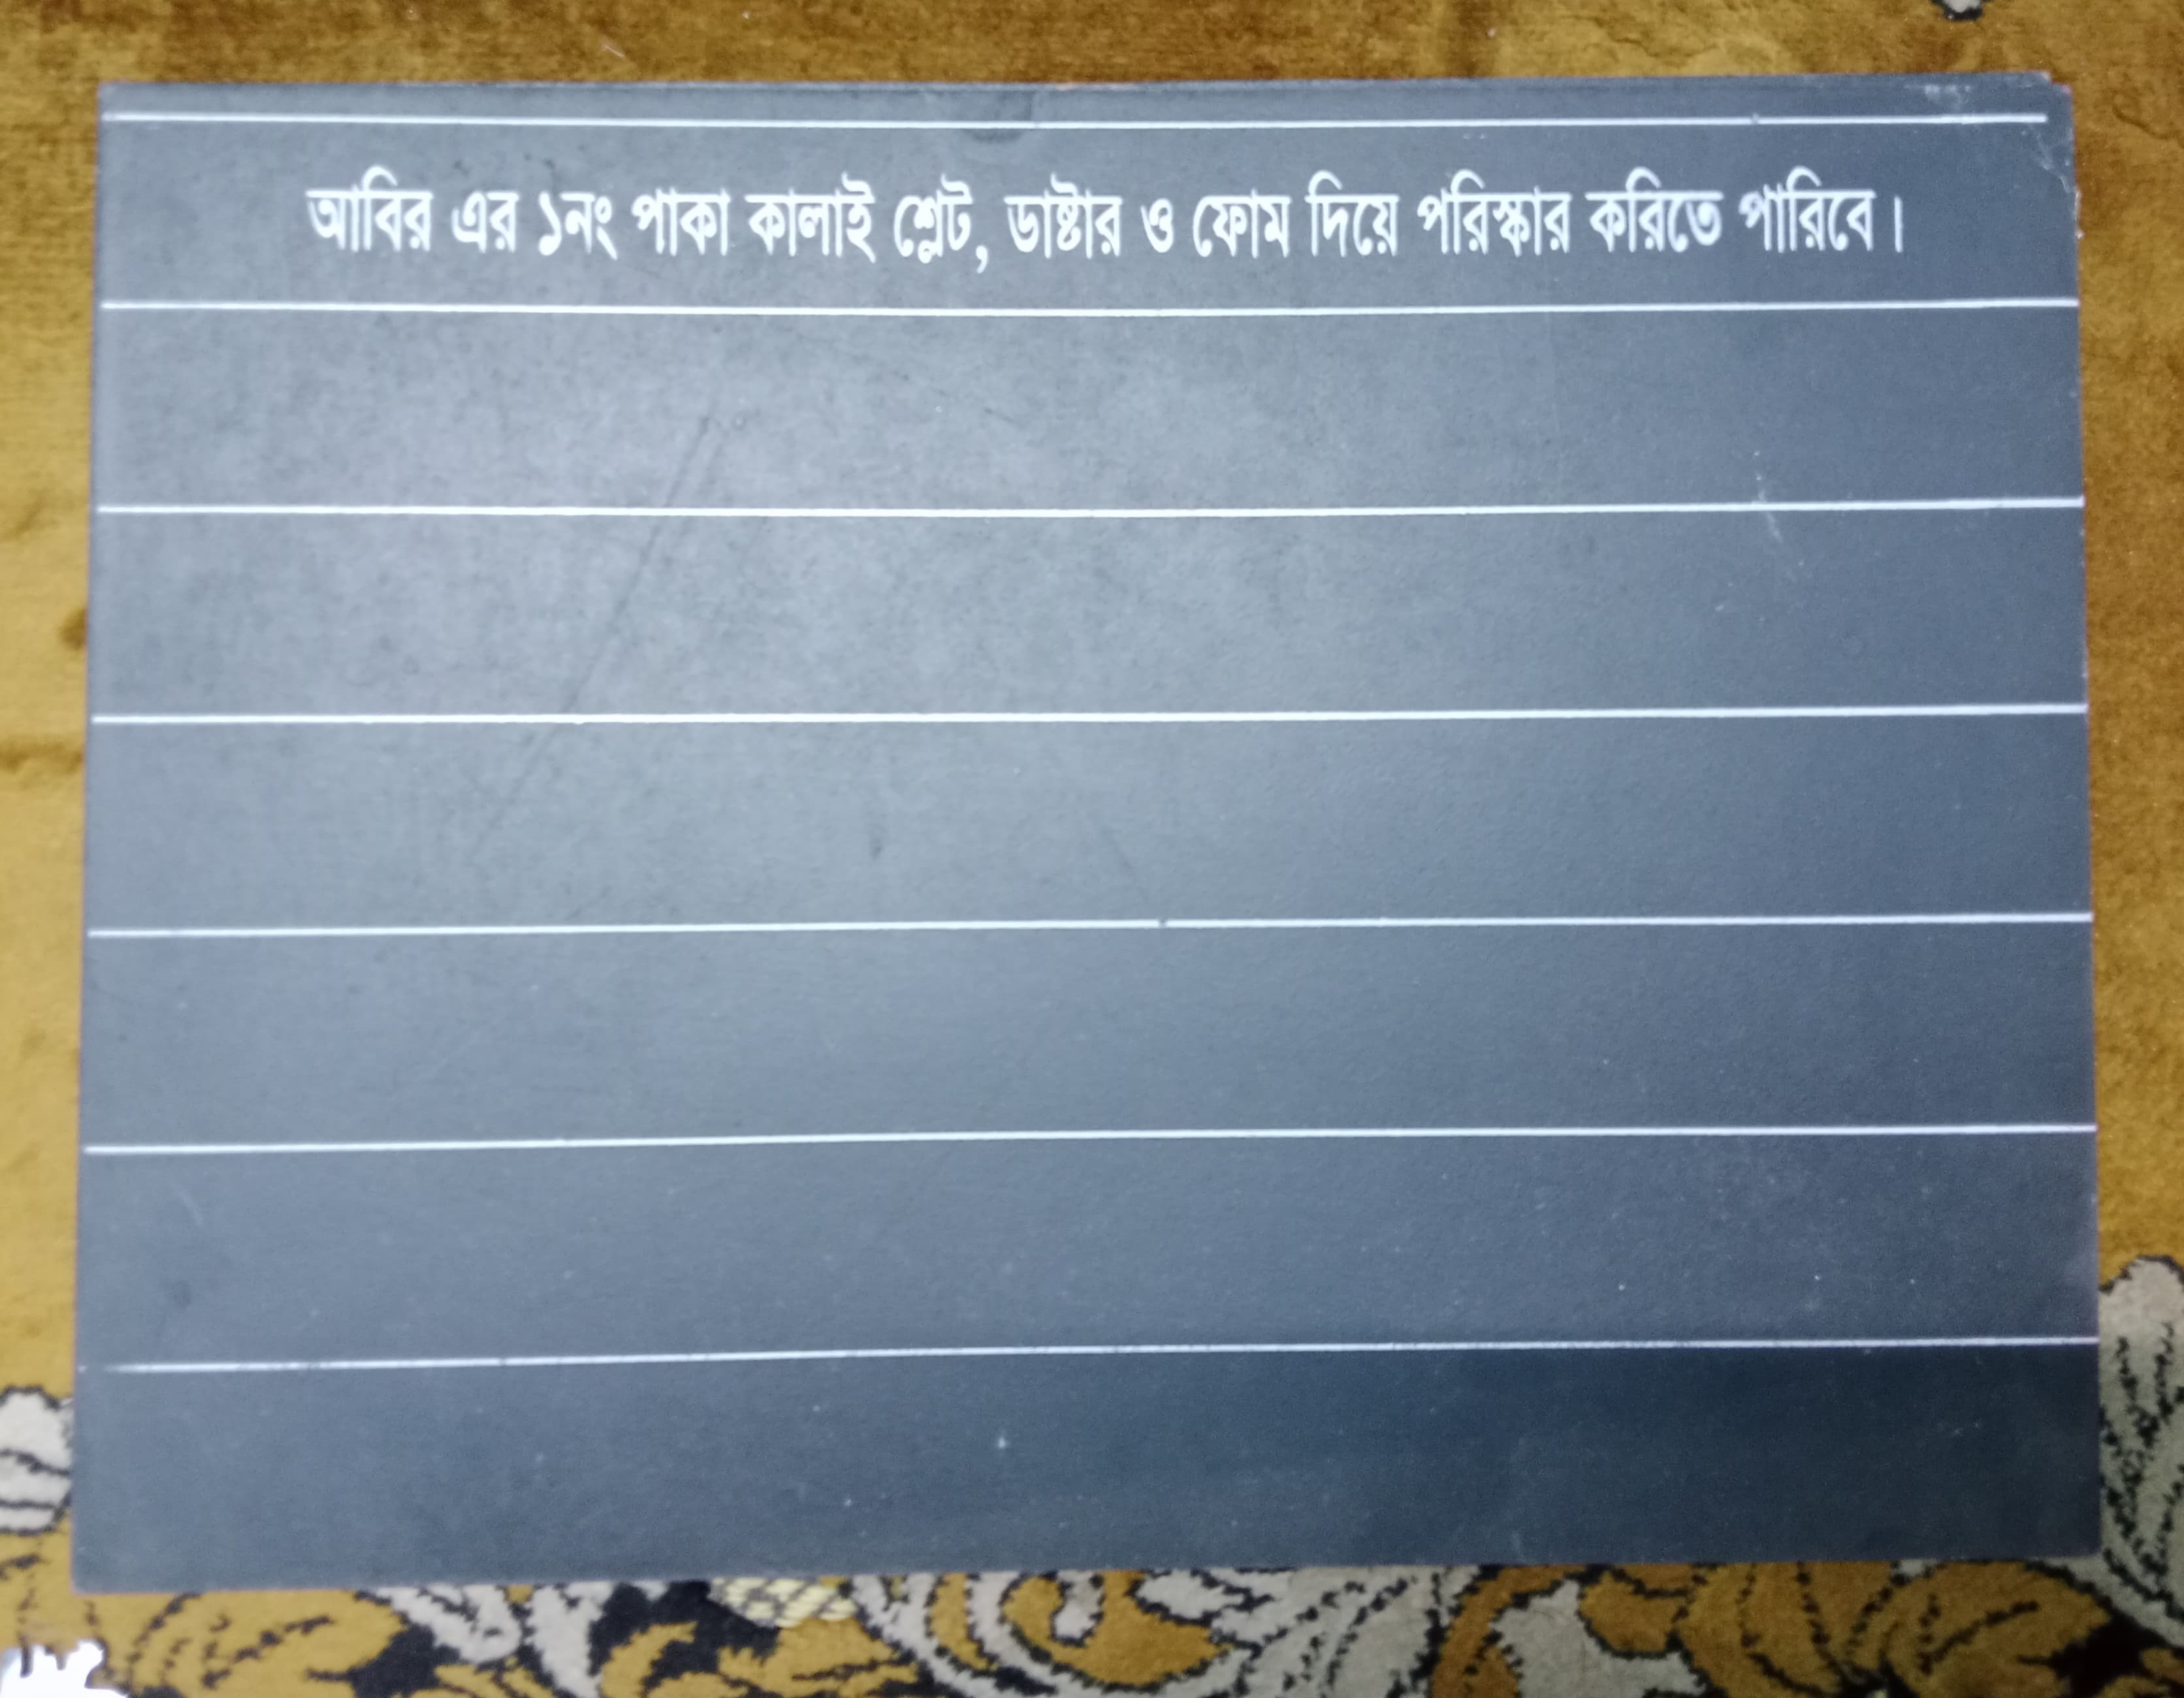 আবির এর ১নং পাকা কালাই শ্লেট, ডাষ্টার ও ফোম দিয়ে পরিস্কার করিতে পারিবে।